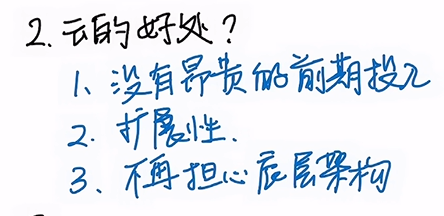 2. 云的好处?
1、没有昂贵的前期投入
2. 扩展性.
3、不再担心底层架构